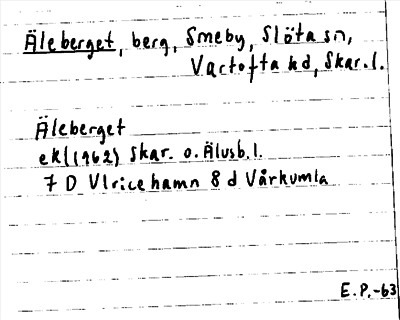 Äleberget, berg, Smeby, Slöta sn,
Vartofta hd, Skar. l.
Äleberget
ekl(1962) Skar. o. Älvsb. l.
7 D Ulricehamn 8 d Vårkumla
E.P.-63